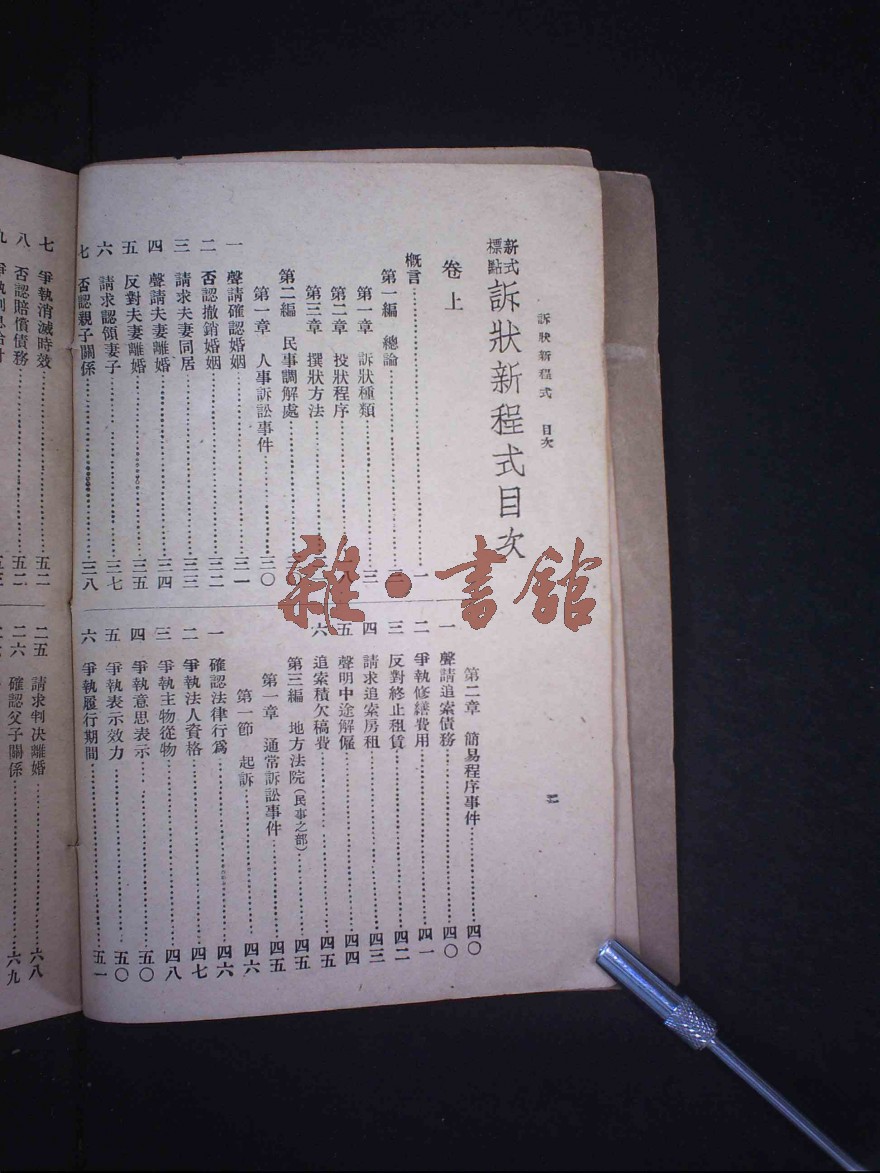 訴狀新程式　目次
二
新式標點訴狀新程式目次
卷上
概言…………一
第一編　總論…………三
第一章　訴狀種類…………三
第二章　投狀程序…………八
第三章　撰狀方法…………
第二編　民事調解處…………
第一章　人事訴訟事件…………三〇
一　聲請確認婚姻…………三一
二　否認撤銷婚姻…………三二
三　請求夫妻同居…………三三
四　聲請夫妻離婚…………三四
五　反對夫妻離婚…………三五
六　請求認領妻子…………三七
七　否認親子關係…………三八
第二章　簡易程序事件…………四〇
一　聲請追索債務…………四〇
二　爭執修繕費用…………四一
三　反對終止租賃…………四二
四　請求追索房租…………四三
五　聲明中途解僱…………四四
六　追索積欠稿費…………四五
第三編　地方法院（民事之部）…………四五
第一章　通常訴訟事件…………四五
第一節　起訴…………四六
一　確認法律行爲…………四六
二　爭執法人資格…………四七
三　爭執主物從物…………四八
四　爭執意思表示…………五〇
五　爭執表示效力…………五〇
六　爭執履行期間…………五一
七　爭執消滅時效…………五二
八　否認賠償債務…………五二
九　爭執利息給付
二五　請求判決離婚…………六八
二六　確認父子關係…………六九
雜·書館